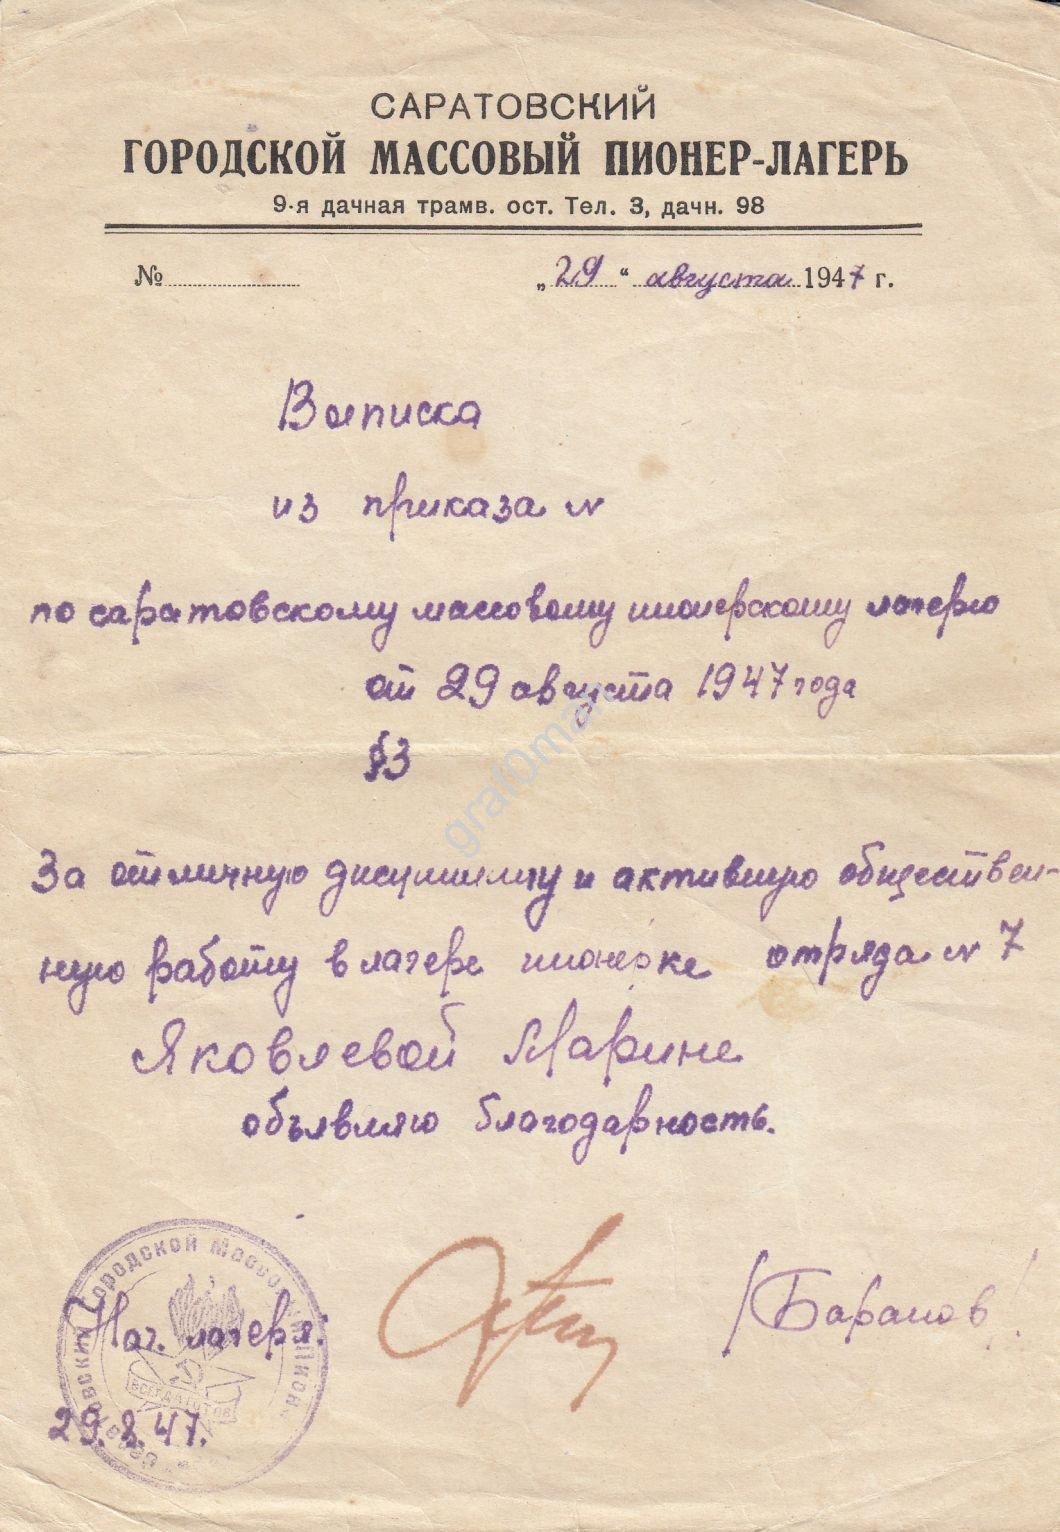 САРАТОВСКИЙ
ГОРОДСКОЙ МАССОВЫЙ ПИОНЕР-ЛАГЕРЬ
9-я дачная трамв. ост. Тел. 3, дачн. 98
№ „29“ августа 1947 г.
Выписка
из приказа №
по саратовскому массовому пионерскому лагерю
от 29 августа 1947 года
§3
За отличную дисциплину и активную обществен-
ную работу в лагере пионерке отряда № 7
Яковлевой Марине
объявляю благодарность.
Нач. лагеря: /Баранов/
29.8.47.
Городской Массовый Пион.
ВСЕГДА ГОТОВ
graf0man